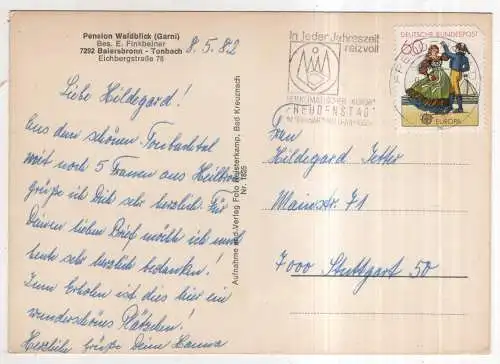 Pension Waldblick (Garni)
Bes. E. Finkbeiner
7292 Baiersbronn - Tonbach
Eichbergstraße 76
8.5.82
Liebe Hildegard!
Aus dem schönen Tonbachtal
weit noch 5 Frauen aus Heilbronn
grüße ich Dich sehr herzlich. Für
Deinen lieben Brief möchte ich mich
heute sehr herzlich bedanken!
Zum Erholen ist dies hier ein
wunderschönes Plätzchen!
Herzliche Grüße Deine Hanna
Aufnahme und Verlag Foto Reisterkamp, Bad Kreuznach
Nr. 1925
in jeder Jahreszeit
reizvoll
HEILKLIMATISCHER KURORT
FREUDENSTADT
DEUTSCHE BUNDESPOST
60
EUROPA
Frau
Hildegard Jetter
Mainstr. 71
7000 Stuttgart 50